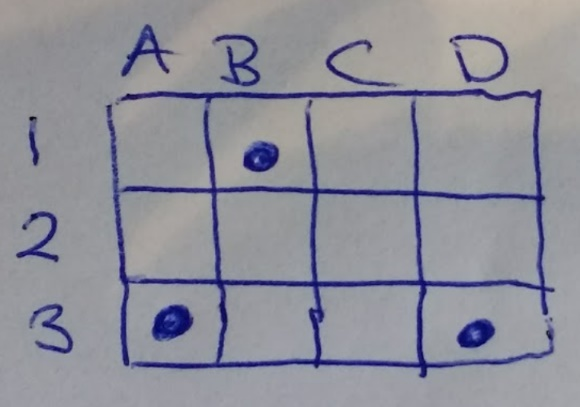 A B C D
1
2
3